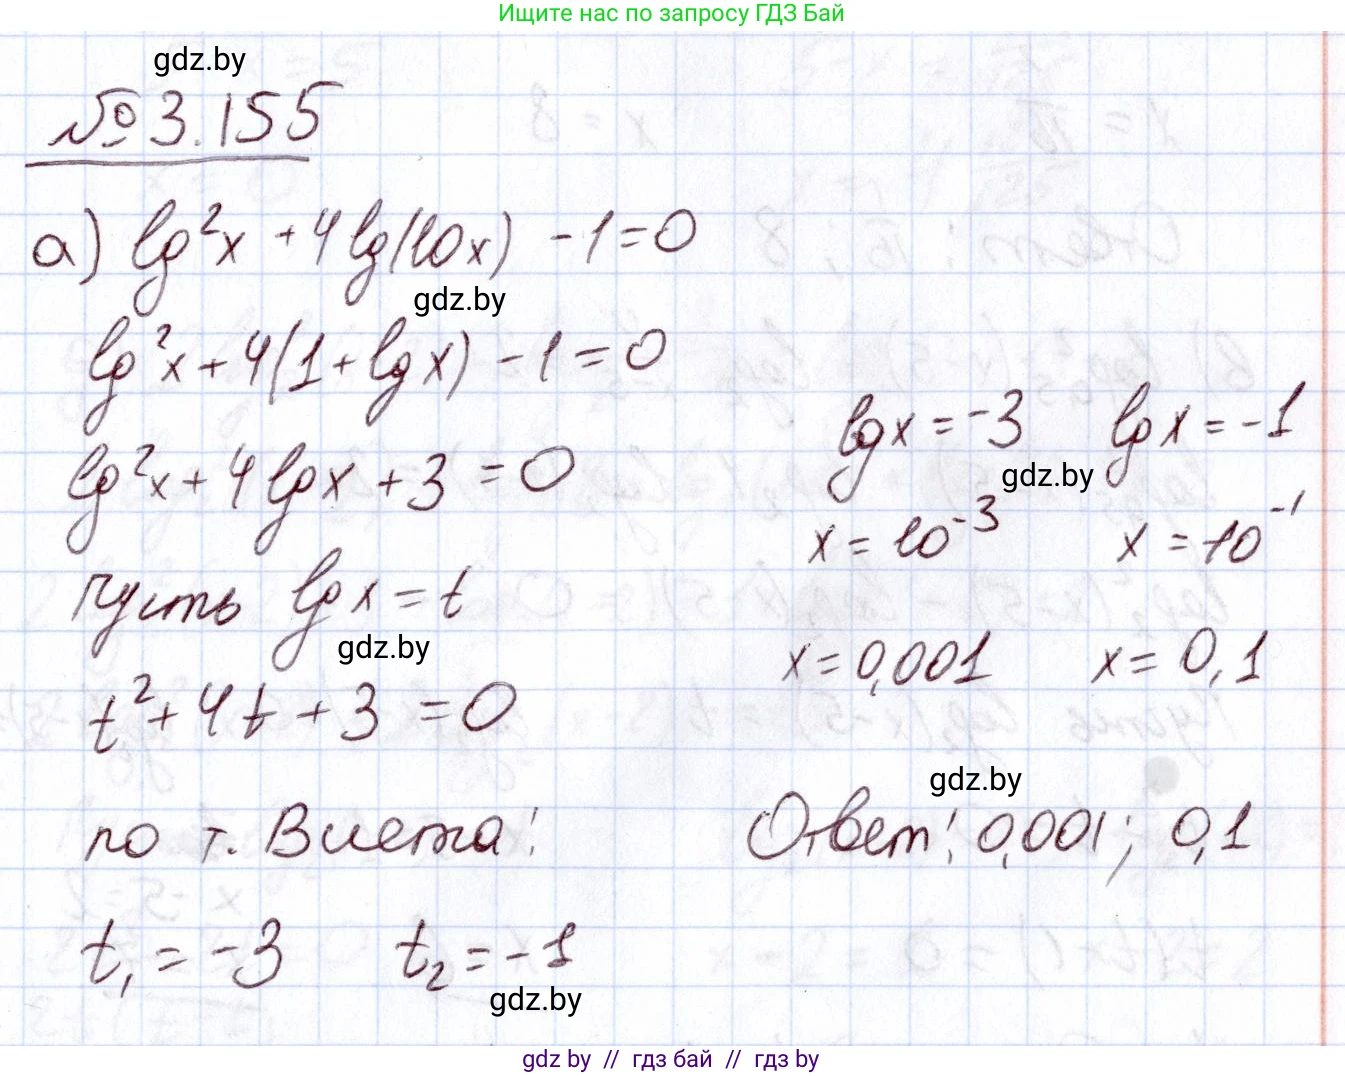 Ищите нас по запросу ГДЗ Бай
gdz.by
№ 3.155
а) lg²x + 4lg(10x) - 1 = 0
gdz.by
lg²x + 4(1 + lg x) - 1 = 0
lg²x + 4lg x + 3 = 0
Пусть lg x = t
gdz.by
t² + 4t + 3 = 0
по т. Виета:
t₁ = -3 t₂ = -1
gdz.by
lg x = -3 lg x = -1
gdz.by
x = 10⁻³ x = 10⁻¹
x = 0,001 x = 0,1
gdz.by
Ответ: 0,001; 0,1
gdz by // гдз бай // гдз by